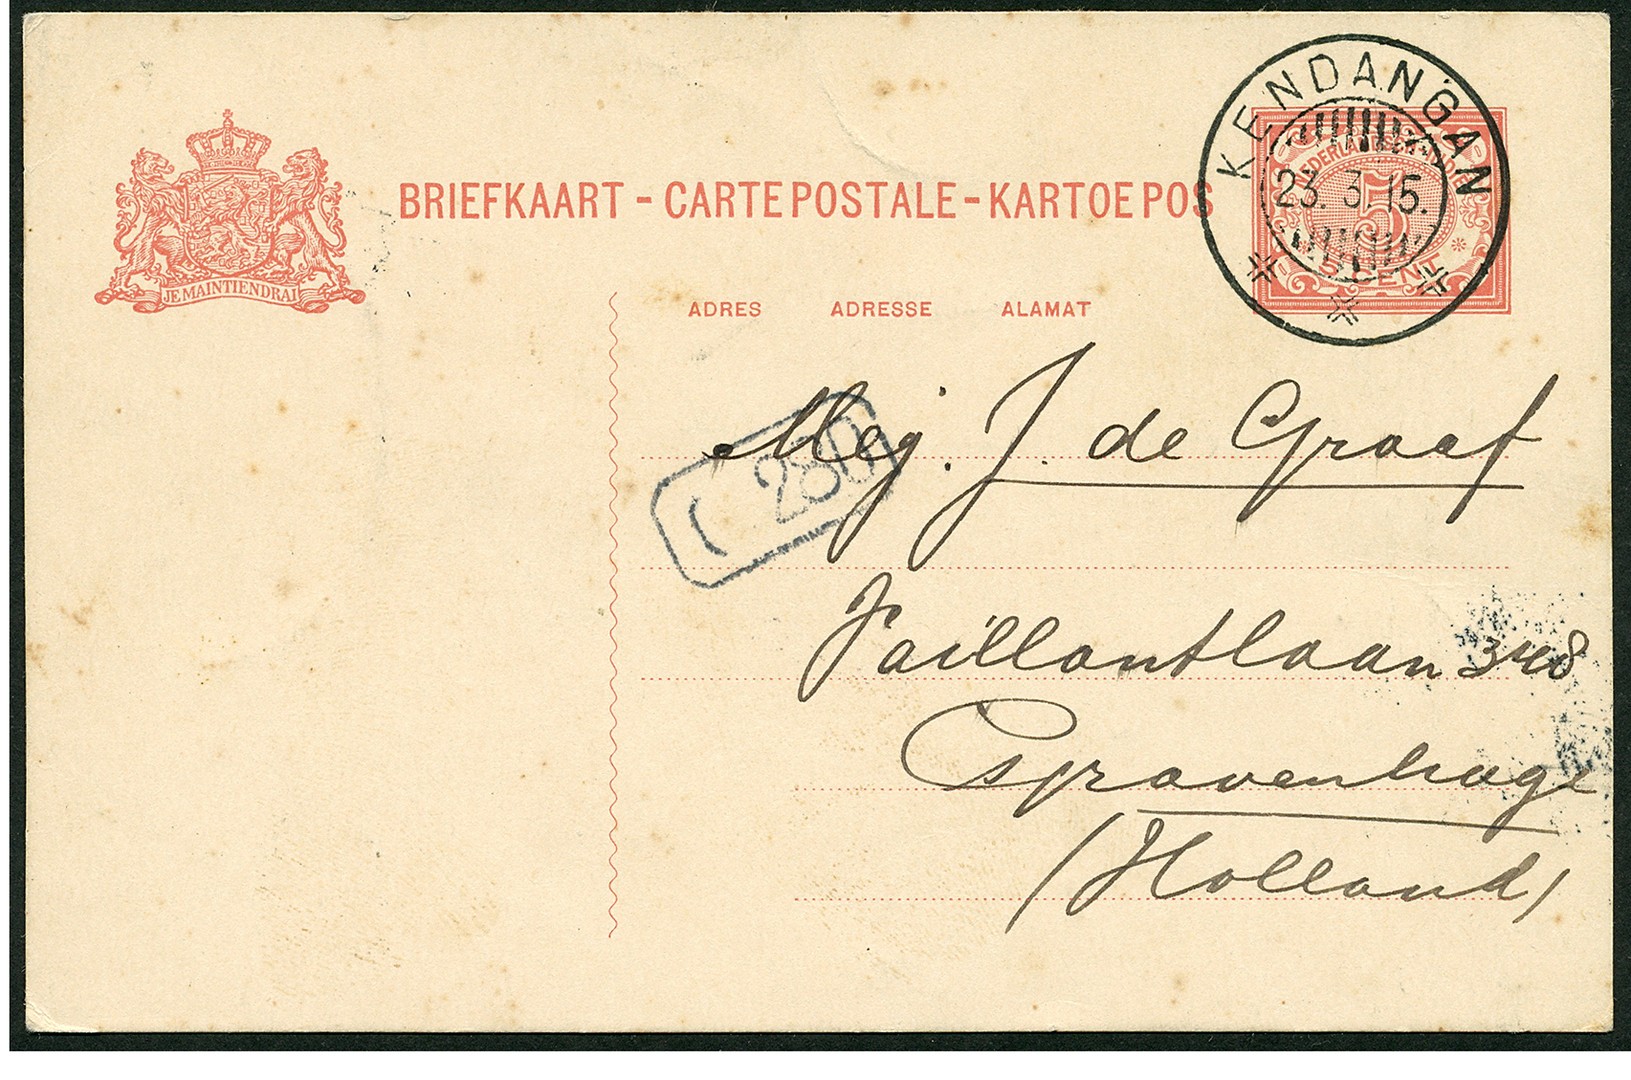 KENDANGAN
23.3.15.
NEDERLANDSCH-INDIË
5
5 CENT
JE MAINTIENDRAI
BRIEFKAART - CARTE POSTALE - KARTOE POS
ADRES ADRESSE ALAMAT
280
Mej. J. de Graaf
Vaillantlaan 348
Gravenhage
(Holland)